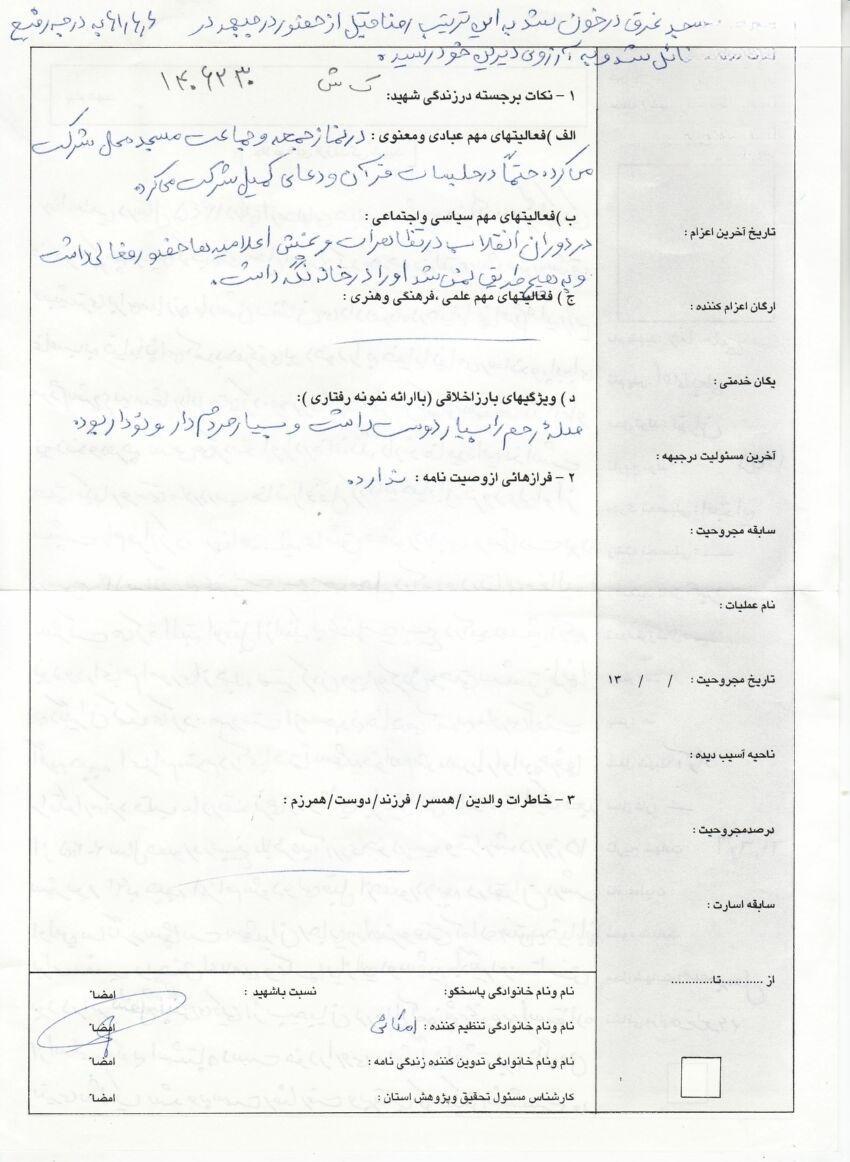 مسجد غرق در خون شد به این ترتیب رضا قبل از حضور در جبهه در ۶۱٫۶٫۶ به درجه رفیع
نائل شد و به آرزوی دیرین خود رسید.
ک ش ۱۴۰۶۲۳۰
۱ - نکات برجسته درزندگی شهید:
الف )فعالیتهای مهم عبادی ومعنوی : در نماز جمعه و جماعت مسجد محل شرکت
می‌کرد. حتماً در جلسات قرآن و دعای کمیل شرکت می‌کرد
ب )فعالیتهای مهم سیاسی واجتماعی :
در دوران انقلاب در تظاهرات و پخش اعلامیه ها حضور فعالی داشت
و به هیچ طریقی نمی شد او را در خانه نگه داشت.
ج ) فعالیتهای مهم علمی ،فرهنگی وهنری :
د ) ویژگیهای بارزاخلاقی (باارائه نمونه رفتاری ):
صله رحم را بسیار دوست داشت و بسیار مردم دار بوده
۲ - فرازهائی ازوصیت نامه : ندارد
۳ - خاطرات والدین /همسر/ فرزند/دوست/همرزم :
تاریخ آخرین اعزام :
ارگان اعزام کننده :
یگان خدمتی :
آخرین مسئولیت درجبهه :
سابقه مجروحیت :
نام عملیات :
تاریخ مجروحیت : / / ۱۳
ناحیه آسیب دیده :
درصدمجروحیت :
سابقه اسارت :
از ............تا............
نام ونام خانوادگی پاسخگو: نسبت باشهید : امضاء
نام ونام خانوادگی تنظیم کننده : امضاء
نام ونام خانوادگی تدوین کننده زندگی نامه : امضاء
کارشناس مسئول تحقیق وپژوهش استان : امضاء